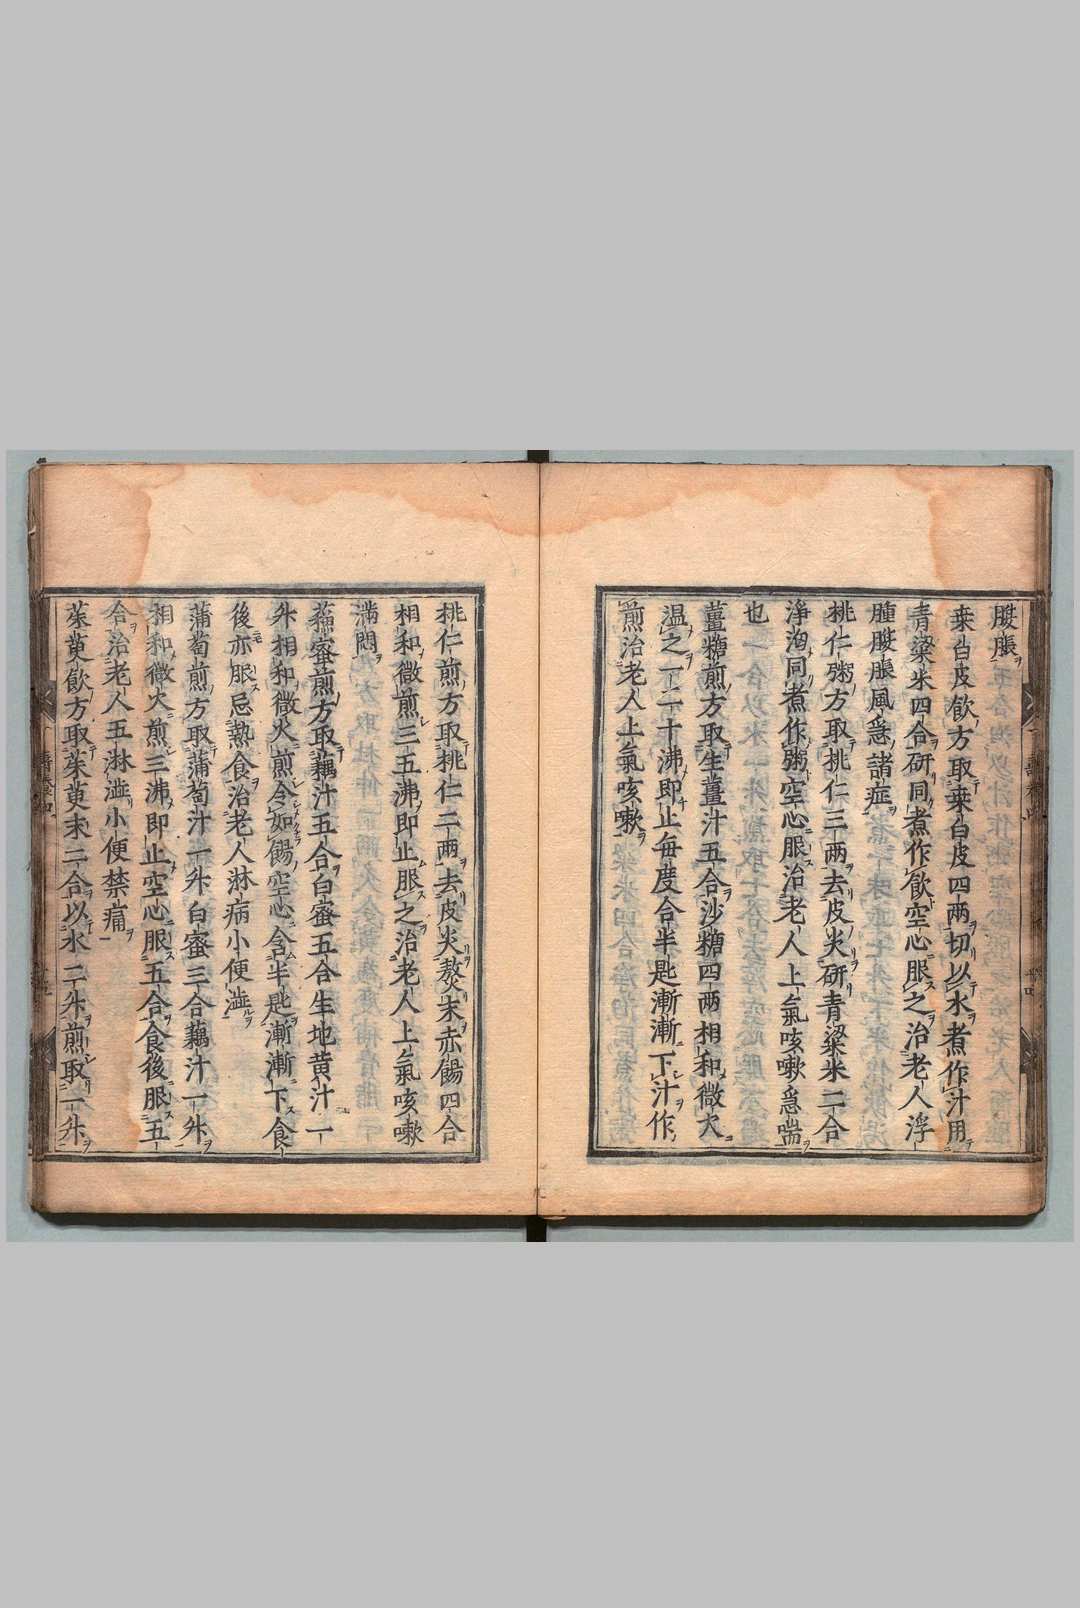 腹脹
桒白皮飲方取桒白皮四兩切以水煮作汁用
青粱米四合研同煮作飲空心服之治老人浮
腫腹脹風急諸症
桃仁粥方取桃仁三兩去皮尖研青粱米二合
淨淘同煮作粥空心服治老人上氣咳嗽急喘
也
薑糖煎方取生薑汁五合沙糖四兩相和微火
温之一二十沸即止每度含半匙漸漸下汁作
煎治老人上氣咳嗽
桃仁煎方取桃仁二兩去皮尖熬末赤餳四合
相和微煎三五沸即止服之治老人上氣咳嗽
滿悶
蘓蜜煎方取藕汁五合白蜜五合生地黄汁一
升相和微火煎令如餳空心含半匙漸漸下食
後亦服忌熱食治老人淋病小便澁
蒲萄煎方取蒲萄汁一升白蜜三合藕汁一升
相和微火煎三沸即止空心服五合食後服五
合治老人五淋澁小便禁痛
茱萸飲方取茱萸末二合以水二升煎取一升